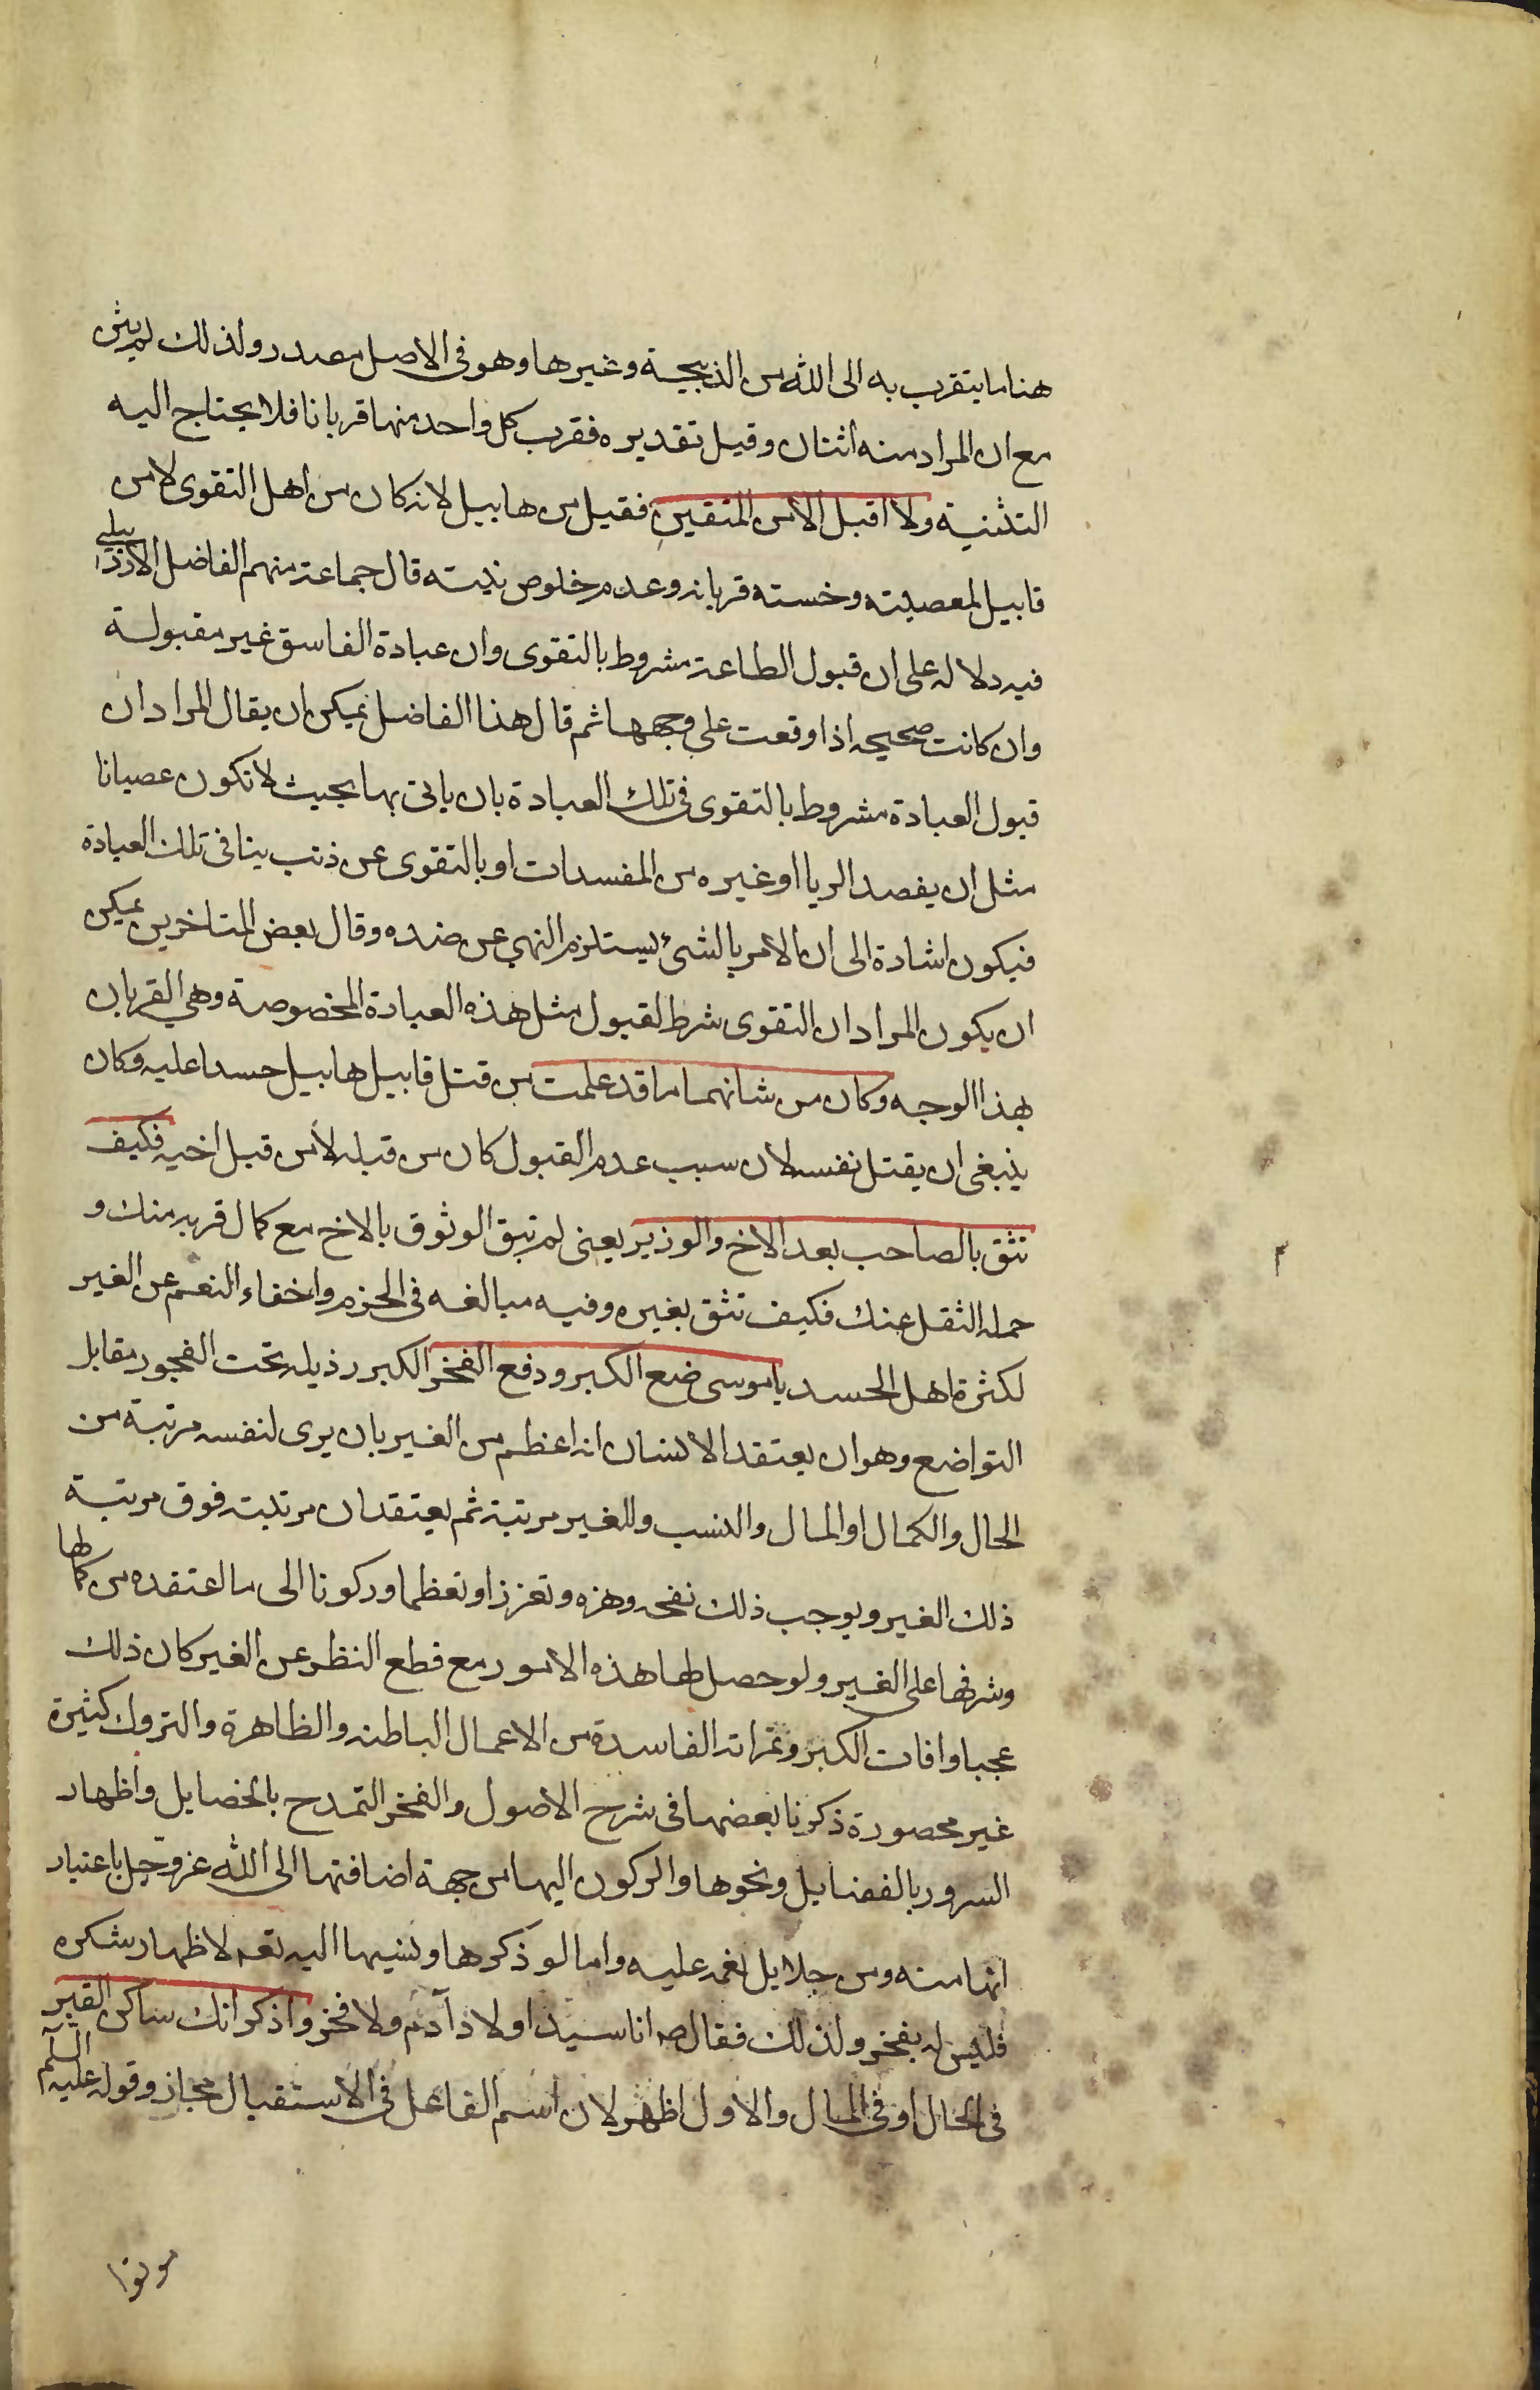 هنا ما يتقرب به الى الله من الذبيحة وغيرها وهو فى الاصل مصدر ولذلك لم يثن
مع ان المراد منه اثنان وقيل تقديره فقرب كل واحد منهما قربانا فلا يحتاج اليه
التثنية ولا اقبل الا من المتقين فقيل من هابيل لانه كان من اهل التقوى لا من
قابيل لمعصيته وخسته قربانه وعدم خلوص نيته قال جماعة منهم الفاضل الاردبيلى
فيه دلاله على ان قبول الطاعة مشروط بالتقوى وان عبادة الفاسق غير مقبولة
وان كانت صحيحه اذا وقعت على وجهها ثم قال هذا الفاضل يمكن ان يقال المراد ان
قبول العبادة مشروط بالتقوى فى تلك العبادة بان ياتى بها بحيث لا تكون عصيانا
مثل ان يقصد الريا او غيره من المفسدات او بالتقوى عن ذنب ينافى تلك العبادة
فيكون اشادة الى ان الامر بالشئ يستلزم النهى عن ضده وقال بعض المتاخرين يمكن
ان يكون المراد ان التقوى شرط لقبول مثل هذه العبادة المخصوصة وهى القربان
بهذا الوجه وكان من شانهما ما قد علمت من قتل قابيل هابيل حسدا عليه وكان
ينبغى ان يقتل نفسه لان سبب عدم القبول كان من قبله لا من قبل اخيه فكيف
تثق بالصاحب بعد الاخ والوزير يعنى لم تبق الوثوق بالاخ مع كمال قربه منك و
حمله الثقل عنك فكيف تثق بغيره وفيه مبالغه فى الحزم واخفاء النعم عن الغير
لكثرة اهل الحسد ياموسى ضع الكبر ودفع الفخر الكبر رذيله تحت الفجور مقابل
التواضع وهو ان يعتقد الانسان انه اعظم من الغير بان يرى لنفسه مرتبة من
الحال والكمال او المال والنسب وللغير مرتبة ثم يعتقد ان مرتبته فوق مرتبة
ذلك الغير ويوجب ذلك نفخه وهزه وتعززا وتعظما وركونا الى ما اعتقده من كمالها
وشرفها على الغير ولو حصل لها هذه الامور مع قطع النظر عن الغير كان ذلك
عجبا وافات الكبر وثمراته الفاسدة من الاعمال الباطنه والظاهرة والتروك كثيرة
غير محصورة ذكرنا بعضها فى شرح الاصول والفخر التمدح بالخصايل واظهار
السرور بالفضايل ونحوها والركون اليها من جهة اضافتها الى الله عز وجل باعتبار
انها منه ومن جلايل نعمه عليه واما لو ذكرها ونسبها اليه تعه لاظهار شكره
فليس له بفخر ولذلك فقال ص انا سيد اولاد آدم ولا فخر واذكر انك ساكن القبر
فى الحال او فى المال والاول اظهر لان اسم الفاعل فى الاستقبال مجاز وقوله عليه السلم